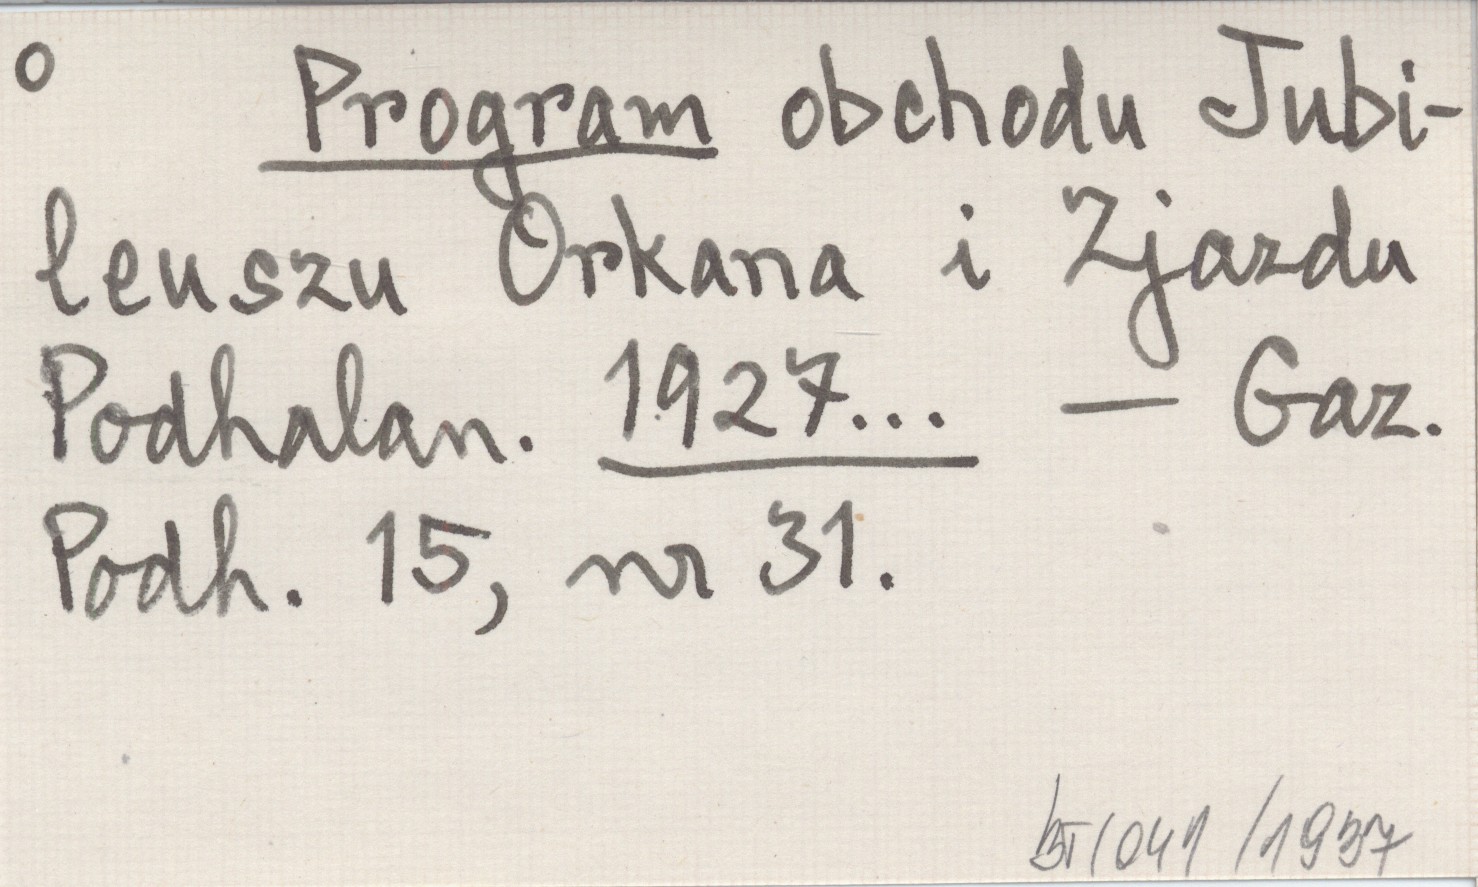 o Program obchodu Jubi-
leuszu Orkana i Zjazdu
Podhalan. 1927... — Gaz.
Podh. 15, nr 31.
/041 /1937